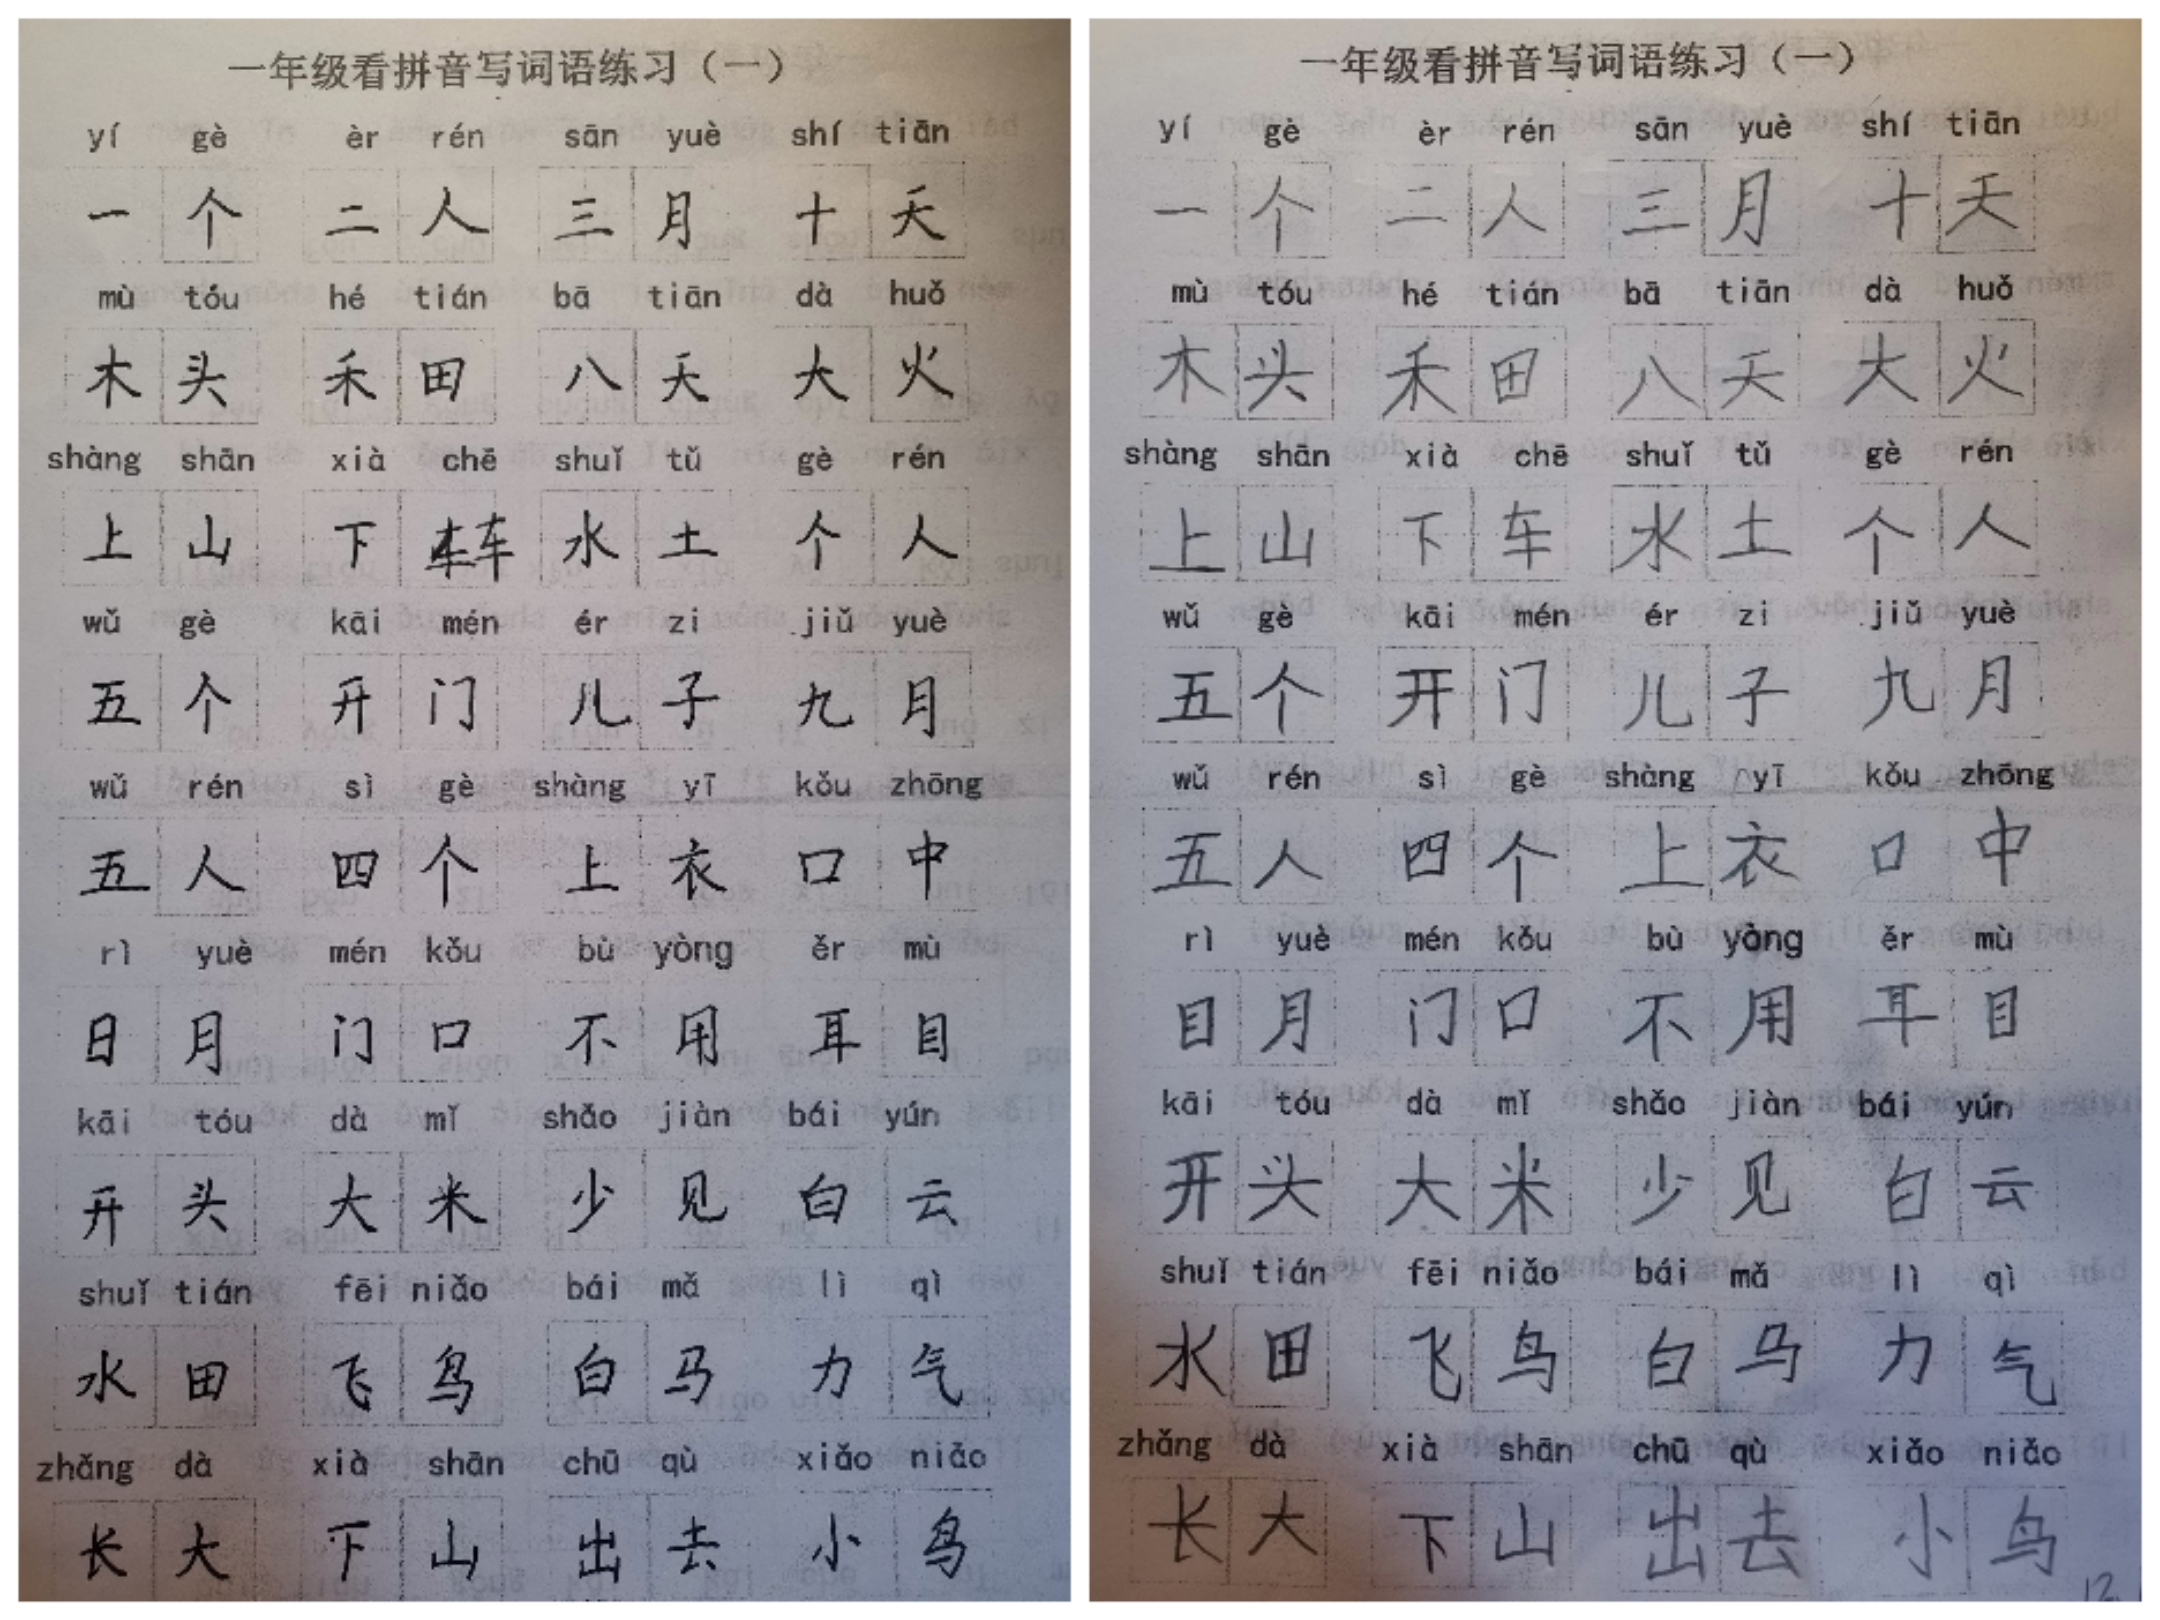 一年级看拼音写词语练习（一）
yí gè èr rén sān yuè shí tiān
一个 二人 三月 十天
mù tóu hé tián bā tiān dà huǒ
木头 禾田 八天 大火
shàng shān xià chē shuǐ tǔ gè rén
上山 下车 水土 个人
wǔ gè kāi mén ér zi jiǔ yuè
五个 开门 儿子 九月
wǔ rén sì gè shàng yī kǒu zhōng
五人 四个 上衣 口中
rì yuè mén kǒu bù yòng ěr mù
日月 门口 不用 耳目
kāi tóu dà mǐ shǎo jiàn bái yún
开头 大米 少见 白云
shuǐ tián fēi niǎo bái mǎ lì qì
水田 飞鸟 白马 力气
zhǎng dà xià shān chū qù xiǎo niǎo
长大 下山 出去 小鸟
一年级看拼音写词语练习（一）
yí gè èr rén sān yuè shí tiān
一个 二人 三月 十天
mù tóu hé tián bā tiān dà huǒ
木头 禾田 八天 大火
shàng shān xià chē shuǐ tǔ gè rén
上山 下车 水土 个人
wǔ gè kāi mén ér zi jiǔ yuè
五个 开门 儿子 九月
wǔ rén sì gè shàng yī kǒu zhōng
五人 四个 上衣 口中
rì yuè mén kǒu bù yòng ěr mù
目月 门口 不用 耳目
kāi tóu dà mǐ shǎo jiàn bái yún
开头 大米 少见 白云
shuǐ tián fēi niǎo bái mǎ lì qì
水田 飞鸟 白马 力气
zhǎng dà xià shān chū qù xiǎo niǎo
长大 下山 出去 小鸟